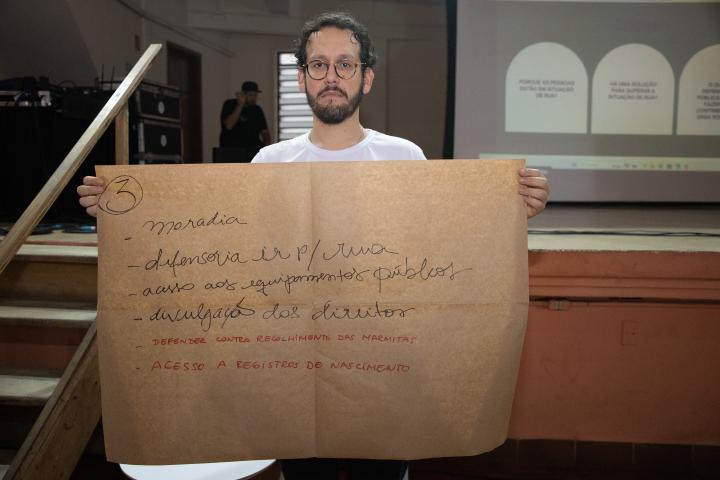 3
- moradia
- defensoria ir p/ rua
- acesso aos equipamentos públicos
- divulgação dos direitos
- DEFENDER CONTRA RECOLHIMENTO DAS MARMITAS
- ACESSO A REGISTROS DE NASCIMENTO
PORQUE AS PESSOAS
ESTÃO EM SITUAÇÃO
DE RUA?
HÁ UMA SOLUÇÃO
PARA SUPERAR A
SITUAÇÃO DE RUA?
O QU